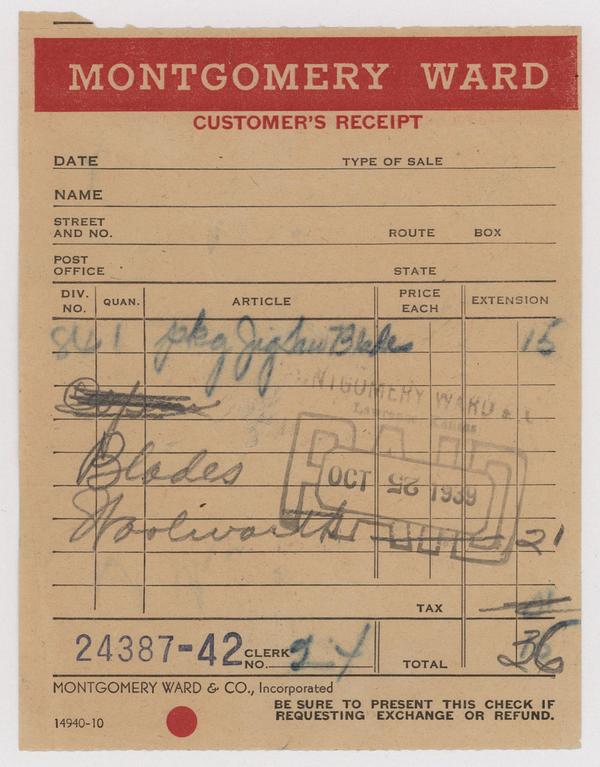 MONTGOMERY WARD
CUSTOMER'S RECEIPT
DATE TYPE OF SALE
NAME
STREET
AND NO. ROUTE BOX
POST
OFFICE STATE
DIV. NO. QUAN. ARTICLE PRICE EACH EXTENSION
841 pkg Jig Saw Blades 15
MONTGOMERY WARD &
Lawrence Kansas
PAID
OCT 25 1939
Blades
Woolworth 21
TAX
24387-42 CLERK NO. 24 TOTAL 36
MONTGOMERY WARD & CO., Incorporated
14940-10
BE SURE TO PRESENT THIS CHECK IF
REQUESTING EXCHANGE OR REFUND.